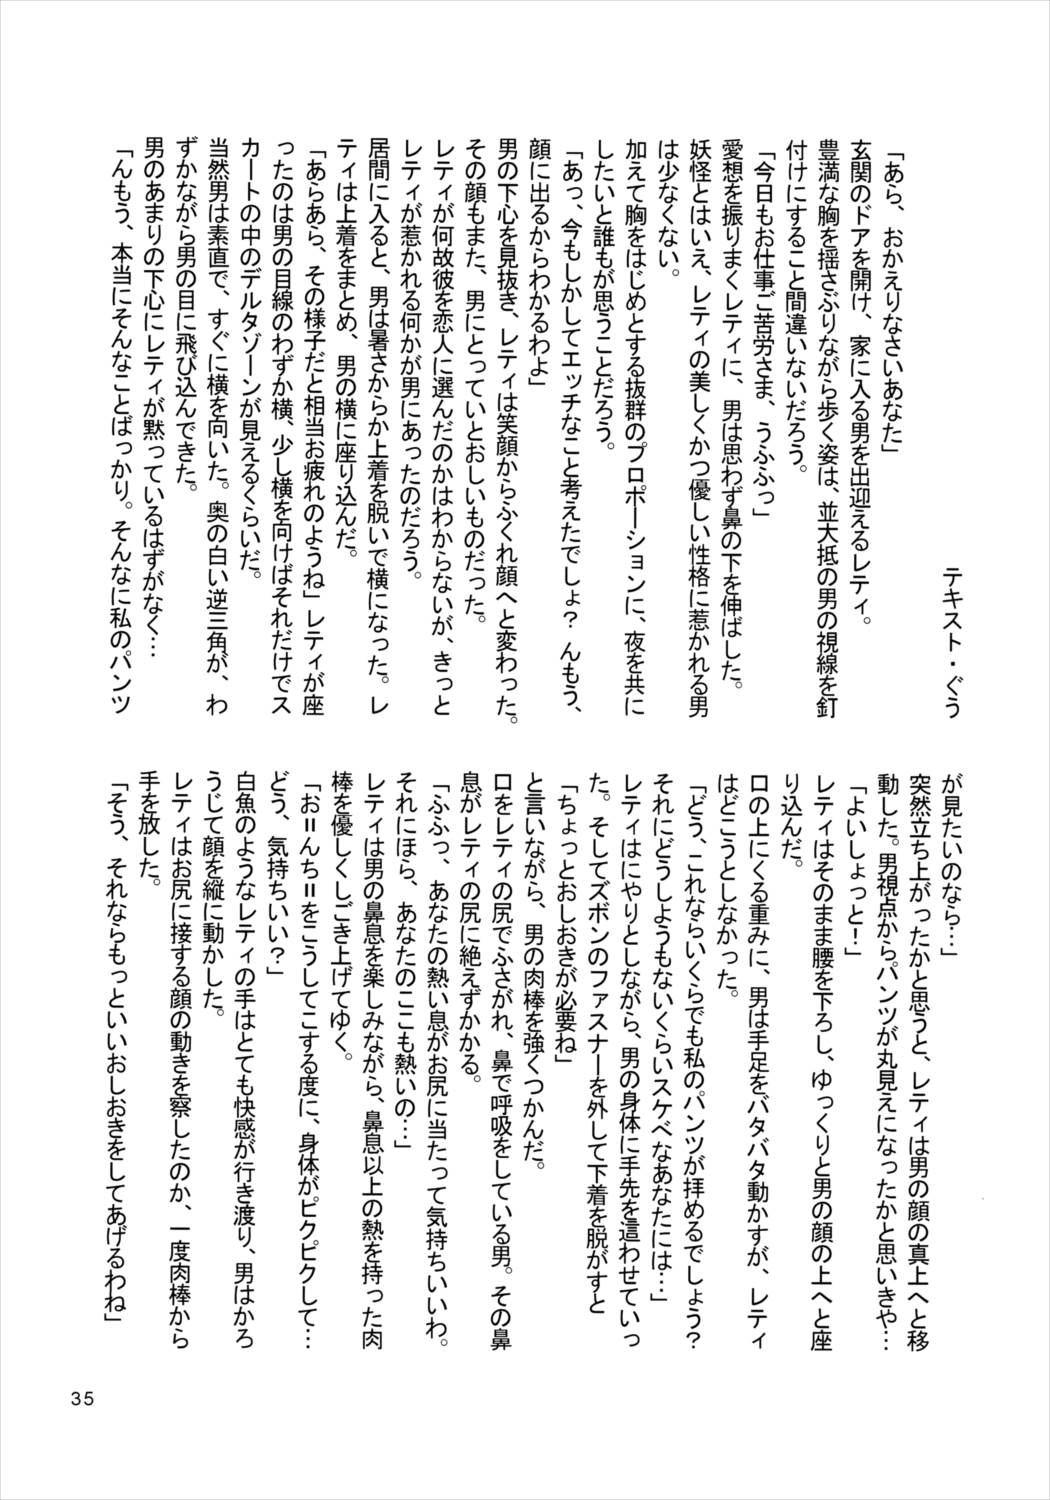 テキスト・ぐう
「あら、おかえりなさいあなた」
玄関のドアを開け、家に入る男を出迎えるレティ。
豊満な胸を揺さぶりながら歩く姿は、並大抵の男の視線を釘
付けにすること間違いないだろう。
「今日もお仕事ご苦労さま、うふふっ」
愛想を振りまくレティに、男は思わず鼻の下を伸ばした。
妖怪とはいえ、レティの美しくかつ優しい性格に惹かれる男
は少なくない。
加えて胸をはじめとする抜群のプロポーションに、夜を共に
したいと誰もが思うことだろう。
「あっ、今もしかしてエッチなこと考えたでしょ？ んもう、
顔に出るからわかるわよ」
男の下心を見抜き、レティは笑顔からふくれ顔へと変わった。
その顔もまた、男にとっていとおしいものだった。
レティが何故彼を恋人に選んだのかはわからないが、きっと
レティが惹かれる何かが男にあったのだろう。
居間に入ると、男は暑さからか上着を脱いで横になった。レ
ティは上着をまとめ、男の横に座り込んだ。
「あらあら、その様子だと相当お疲れのようね」レティが座
ったのは男の目線のわずか横、少し横を向けばそれだけでス
カートの中のデルタゾーンが見えるくらいだ。
当然男は素直で、すぐに横を向いた。奥の白い逆三角が、わ
ずかながら男の目に飛び込んできた。
男のあまりの下心にレティが黙っているはずがなく…
「んもう、本当にそんなことばっかり。そんなに私のパンツ
が見たいのなら…」
突然立ち上がったかと思うと、レティは男の顔の真上へと移
動した。男視点からパンツが丸見えになったかと思いきや…
「よいしょっと！」
レティはそのまま腰を下ろし、ゆっくりと男の顔の上へと座
り込んだ。
口の上にくる重みに、男は手足をバタバタ動かすが、レティ
はどこうとしなかった。
「どう、これならいくらでも私のパンツが拝めるでしょう？
それにどうしようもないくらいスケベなあなたには…」
レティはにやりとしながら、男の身体に手先を這わせていっ
た。そしてズボンのファスナーを外して下着を脱がすと
「ちょっとおしおきが必要ね」
と言いながら、男の肉棒を強くつかんだ。
口をレティの尻でふさがれ、鼻で呼吸をしている男。その鼻
息がレティの尻に絶えずかかる。
「ふふっ、あなたの熱い息がお尻に当たって気持ちいいわ。
それにほら、あなたのここも熱いの…」
レティは男の鼻息を楽しみながら、鼻息以上の熱を持った肉
棒を優しくしごき上げてゆく。
「お＝んち＝をこうしてこする度に、身体がピクピクして…
どう、気持ちいい？」
白魚のようなレティの手はとても快感が行き渡り、男はかろ
うじて顔を縦に動かした。
レティはお尻に接する顔の動きを察したのか、一度肉棒から
手を放した。
「そう、それならもっといいおしおきをしてあげるわね」
35